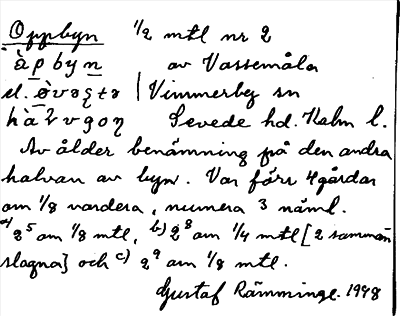 Oppbyn 1/2 mtl nr 2
àp by n av Vassemåla
el. øvəʂtə | Vimmerby sn
hàɫvgoɳ Sevede hd. Kalm l.
Av ålder benämning på den andra
halvan av byn. Var förr 4 gårdar
om 1/8 vardera, numera 3 näml.
a) 2⁵ om 1/8 mtl, b) 2⁸ om 1/4 mtl [2 samman
slagna] och c) 2⁹ om 1/8 mtl.
Gustaf Rämminge. 1948